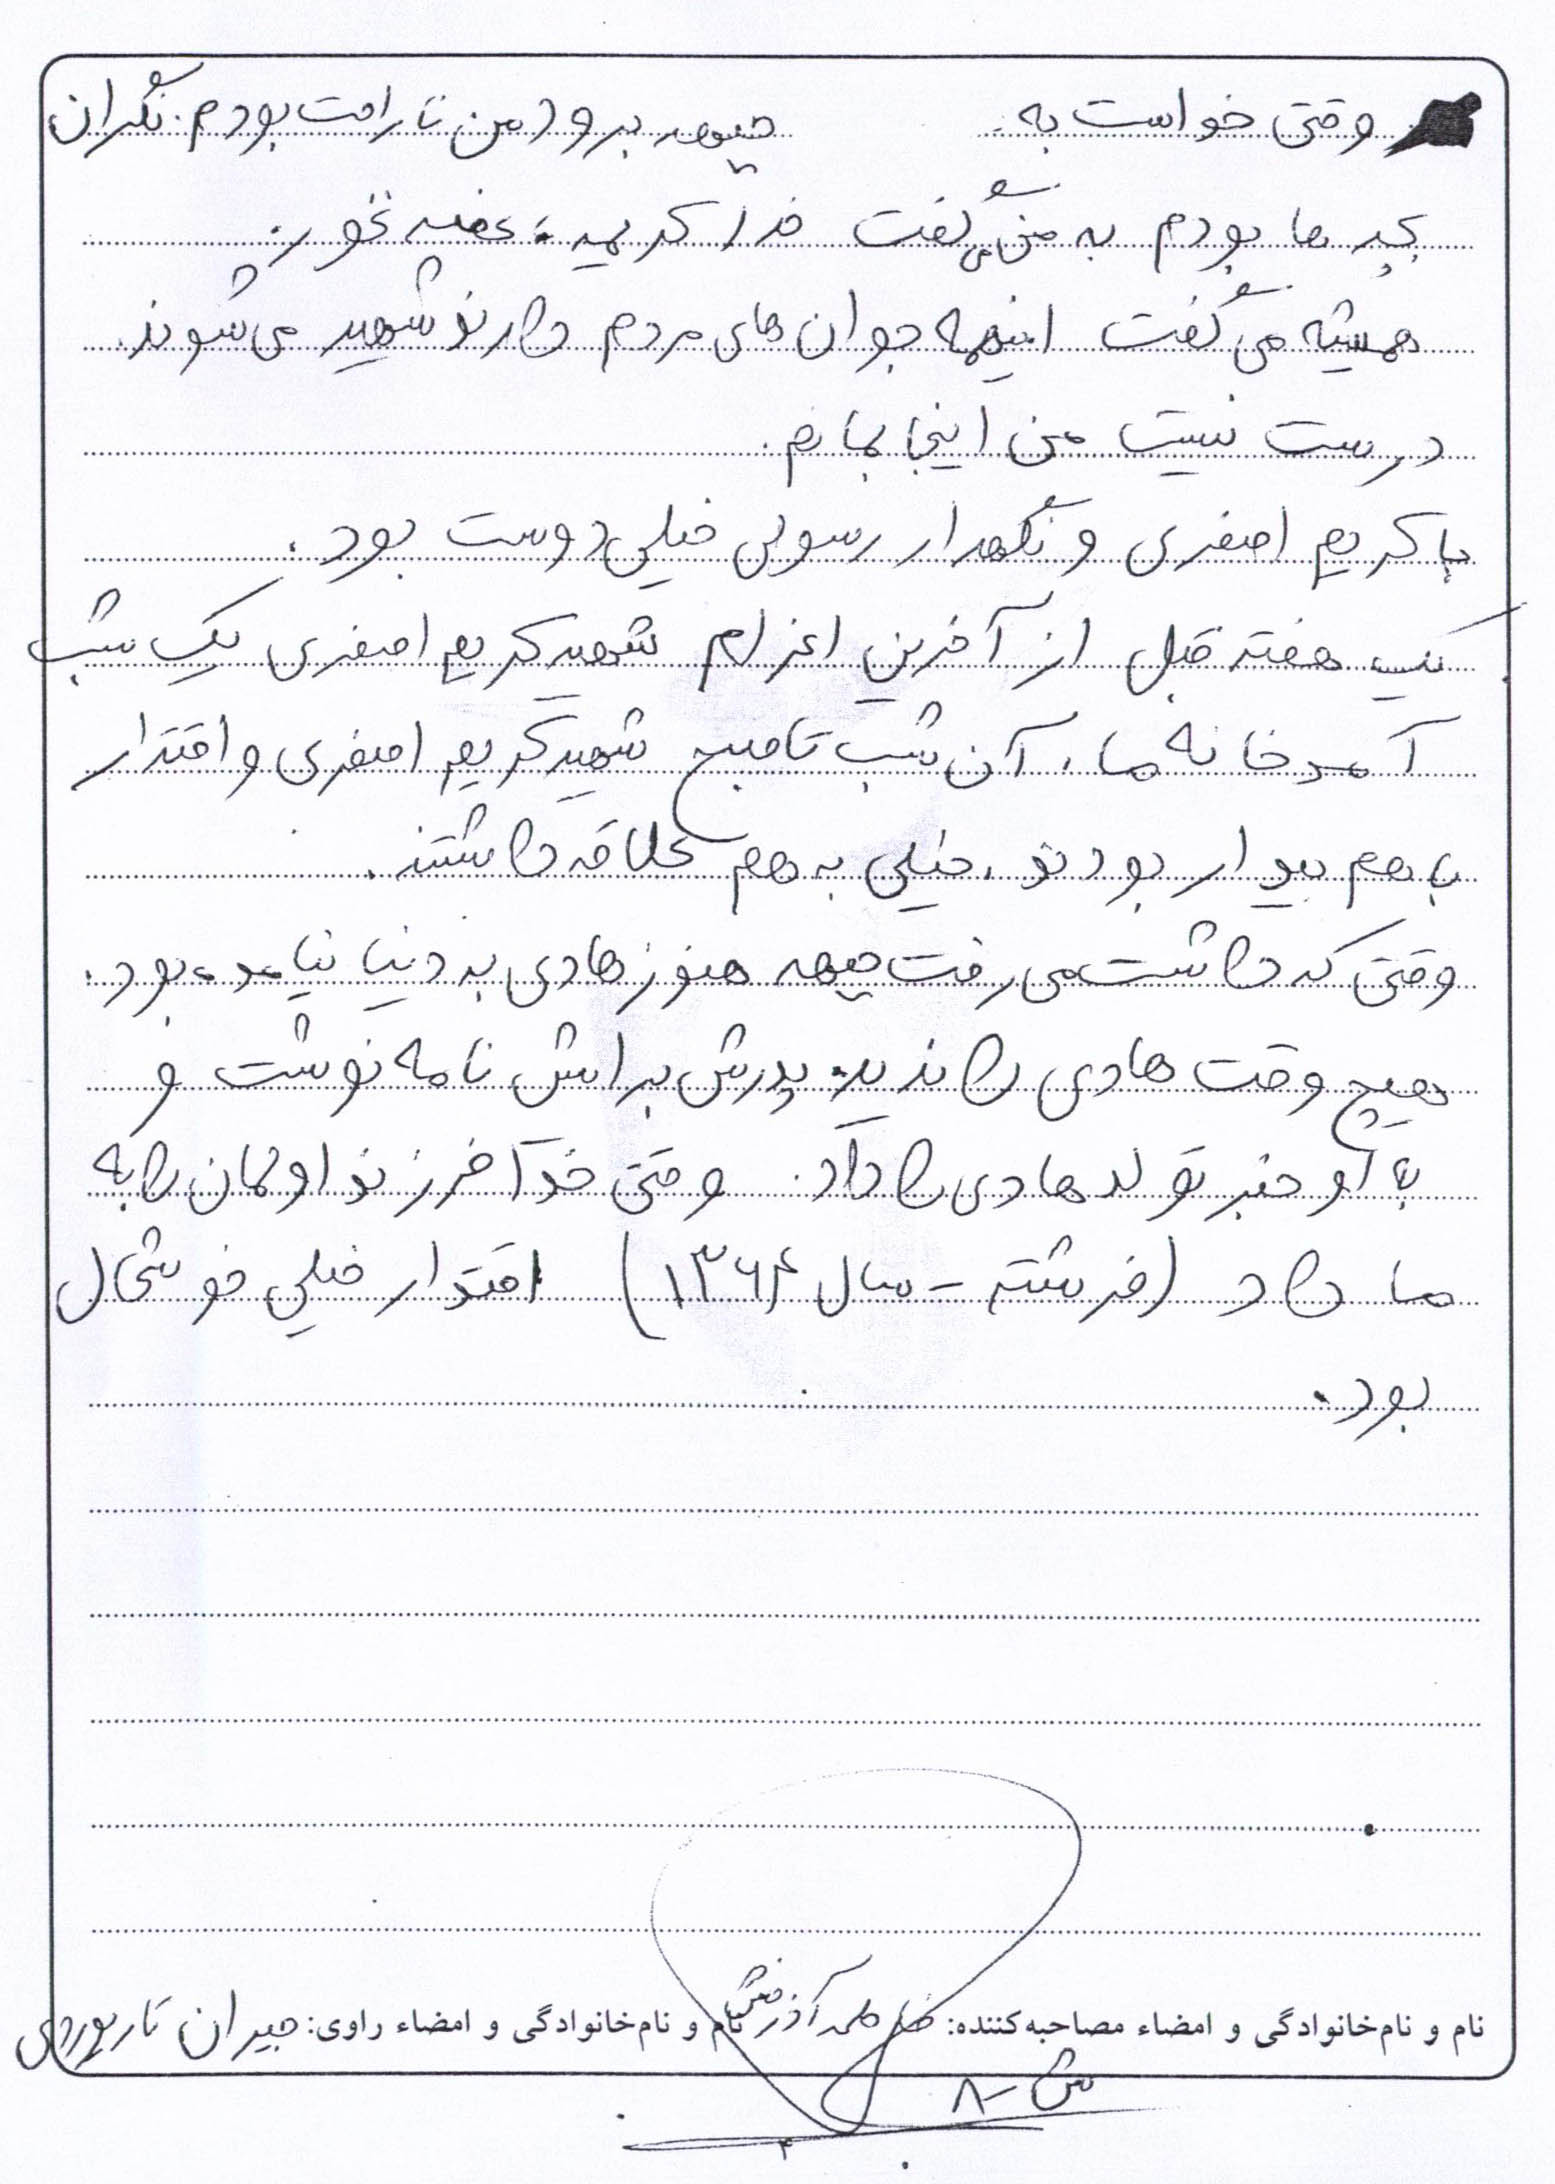 وقتی خواست به جبهه برود من ناراحت بودم. نگران
بچه ها بودم به من می گفت خدا کریمه، غصه نخور.
همیشه می گفت اینهمه جوان های مردم دارند شهید می شوند.
درست نیست من اینجا بمانم.
با کریم اصغری و نگهدار رسولی خیلی دوست بود.
یک هفته قبل از آخرین اعزام شهید کریم اصغری یک شب
آمد خانه ما. آن شب تا صبح شهید کریم اصغری و اقتدار
با هم بیدار بودند. خیلی به هم علاقه داشتند.
وقتی که داشت می رفت جبهه هنوز هادی به دنیا نیامده بود.
هیچ وقت هادی را ندید. پدرش برایش نامه نوشت و
به او خبر تولد هادی را داد. وقتی خدا فرزند اولمان را به
ما داد (فرشته - سال ۱۳۶۴) اقتدار خیلی خوشحال
بود.
نام و نام‌خانوادگی و امضاء مصاحبه‌کننده: نام و نام‌خانوادگی و امضاء راوی: جیران
ش - ۸
۴